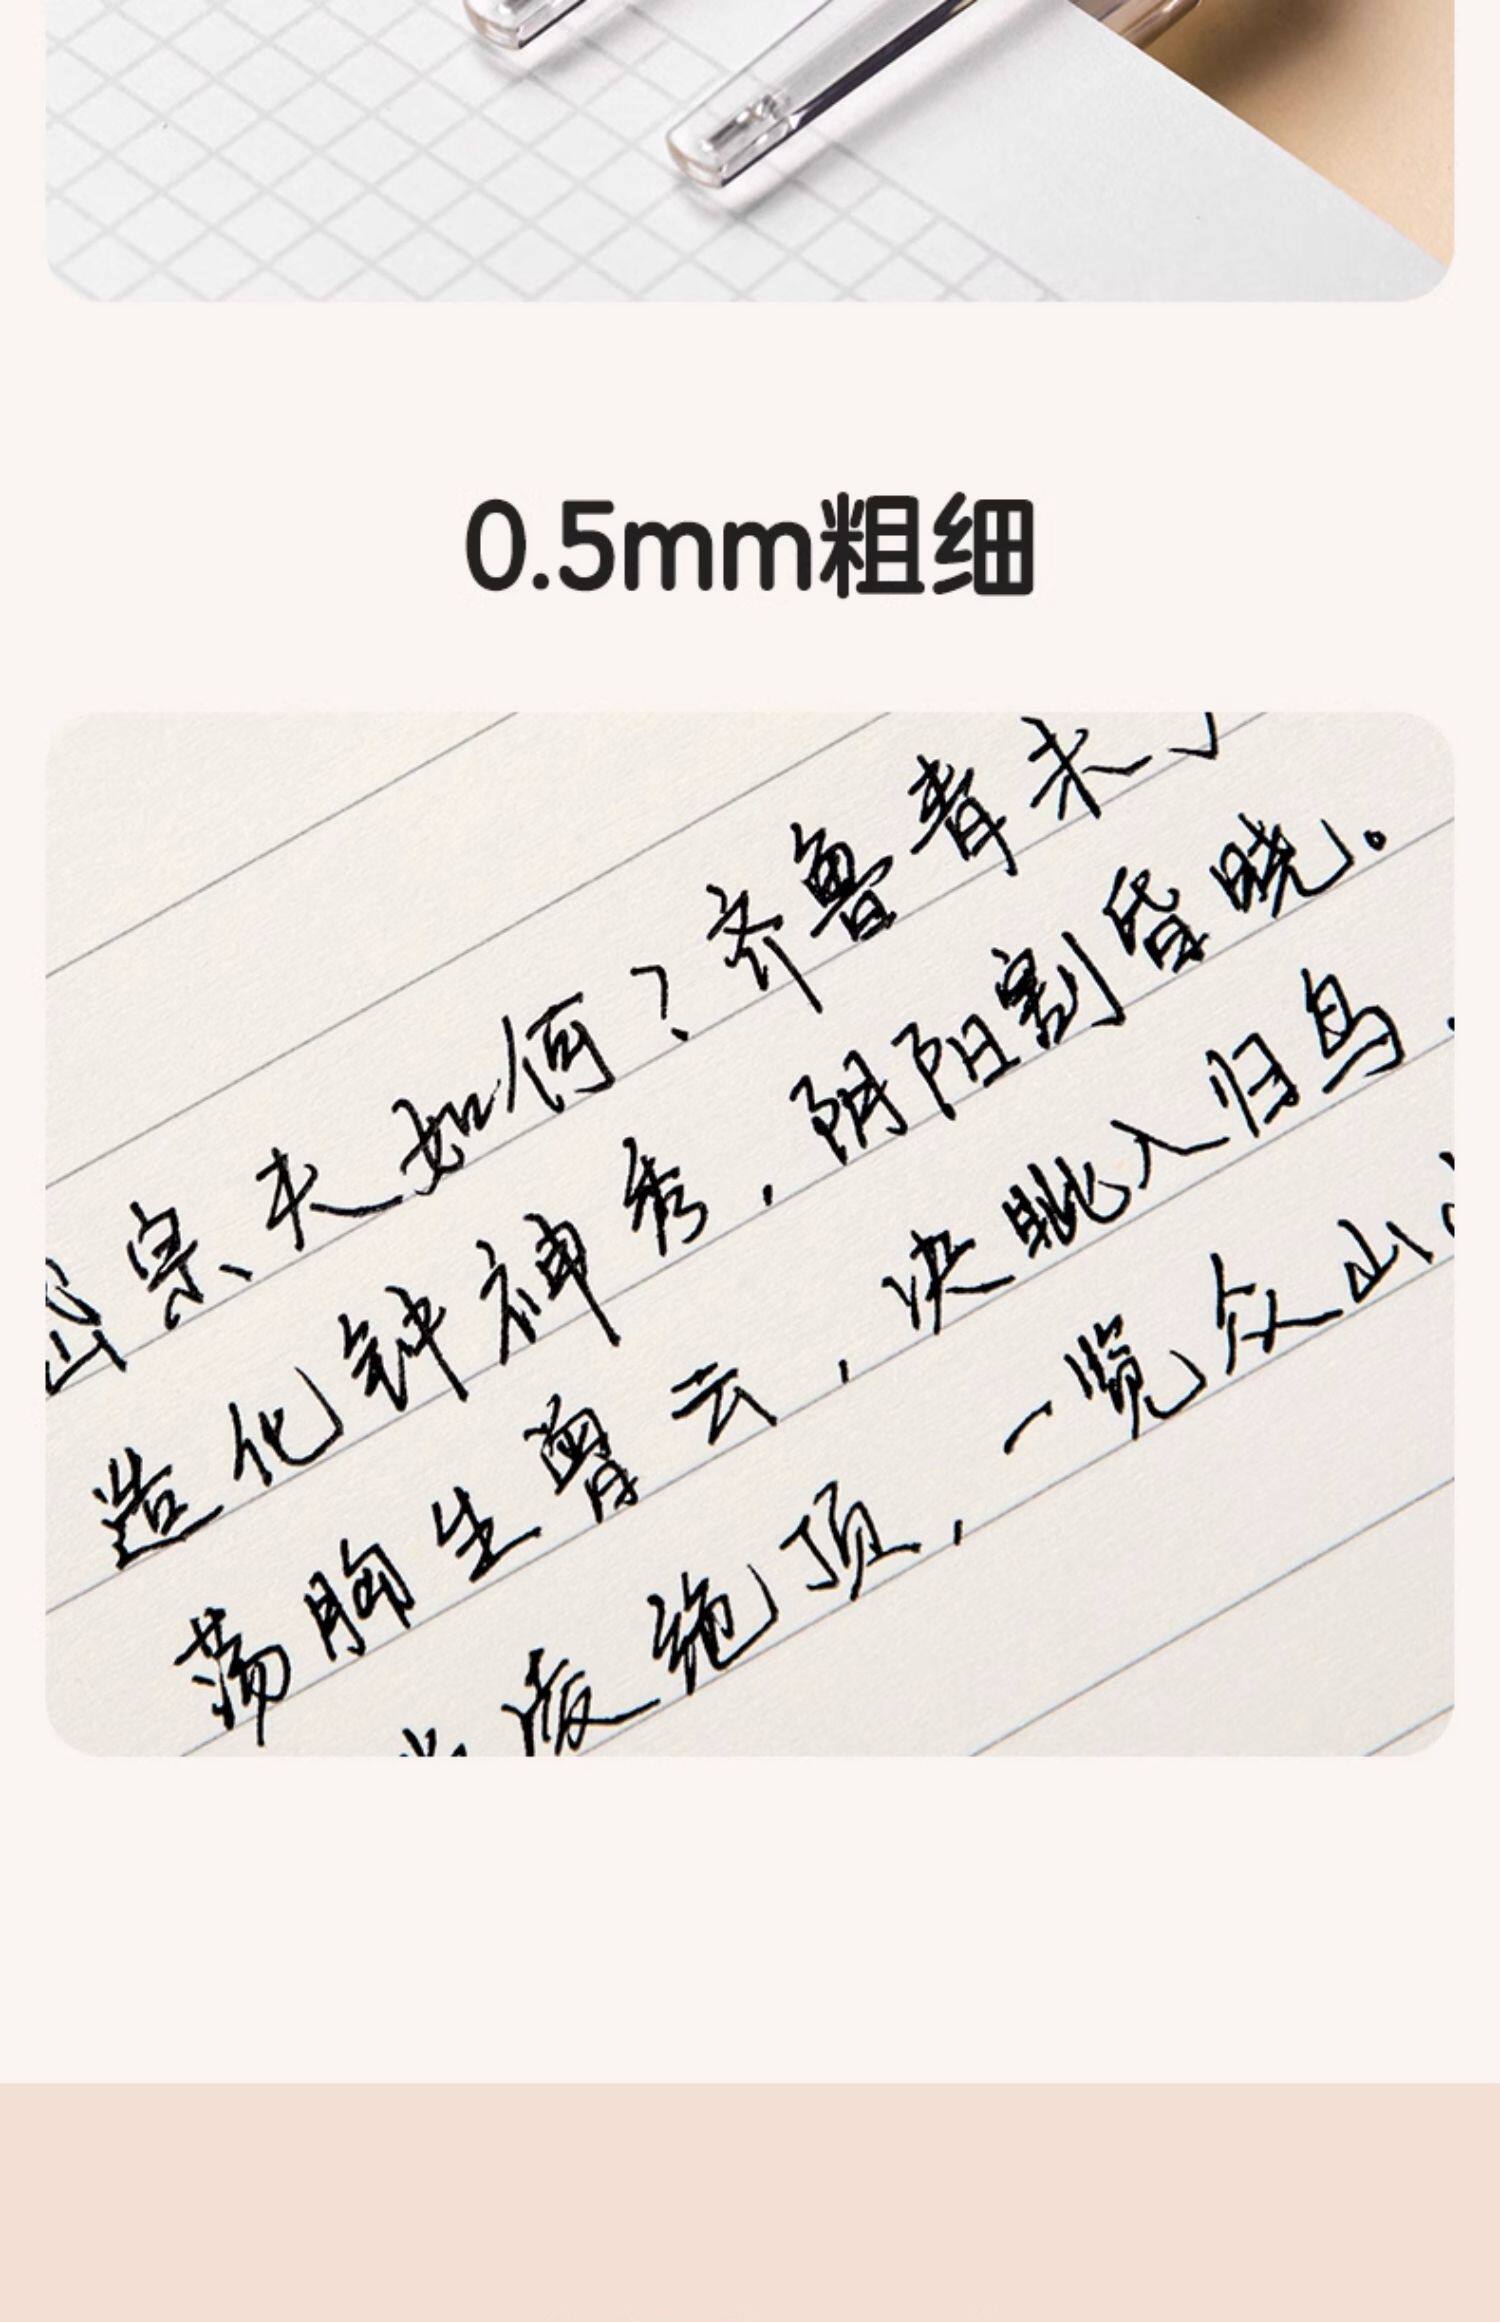 0.5mm粗细
岱宗夫如何？齐鲁青未了
造化钟神秀，阴阳割昏晓。
荡胸生曾云，决眦入归鸟，
凌绝顶，一览众山